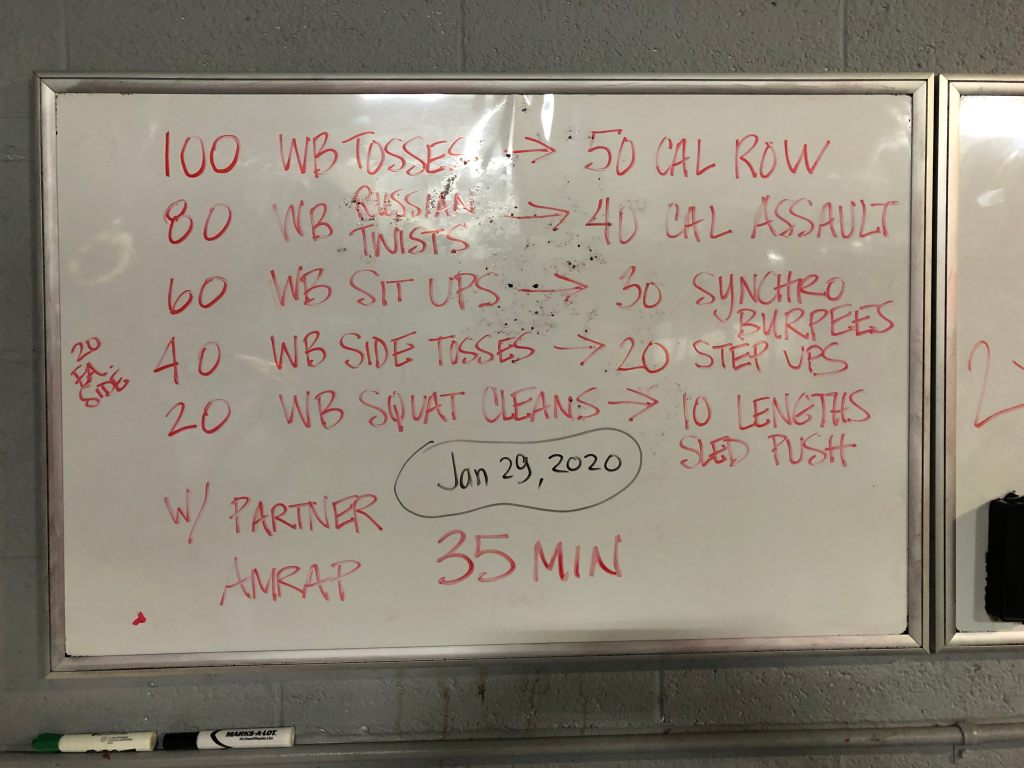 100 WB TOSSES → 50 CAL ROW
80 WB RUSSIAN TWISTS → 40 CAL ASSAULT
60 WB SIT UPS → 30 SYNCHRO BURPEES
20 EA. SIDE
40 WB SIDE TOSSES → 20 STEP UPS
20 WB SQUAT CLEANS → 10 LENGTHS SLED PUSH
Jan 29, 2020
W/ PARTNER
AMRAP 35 MIN
2
MARKS-A-LOT